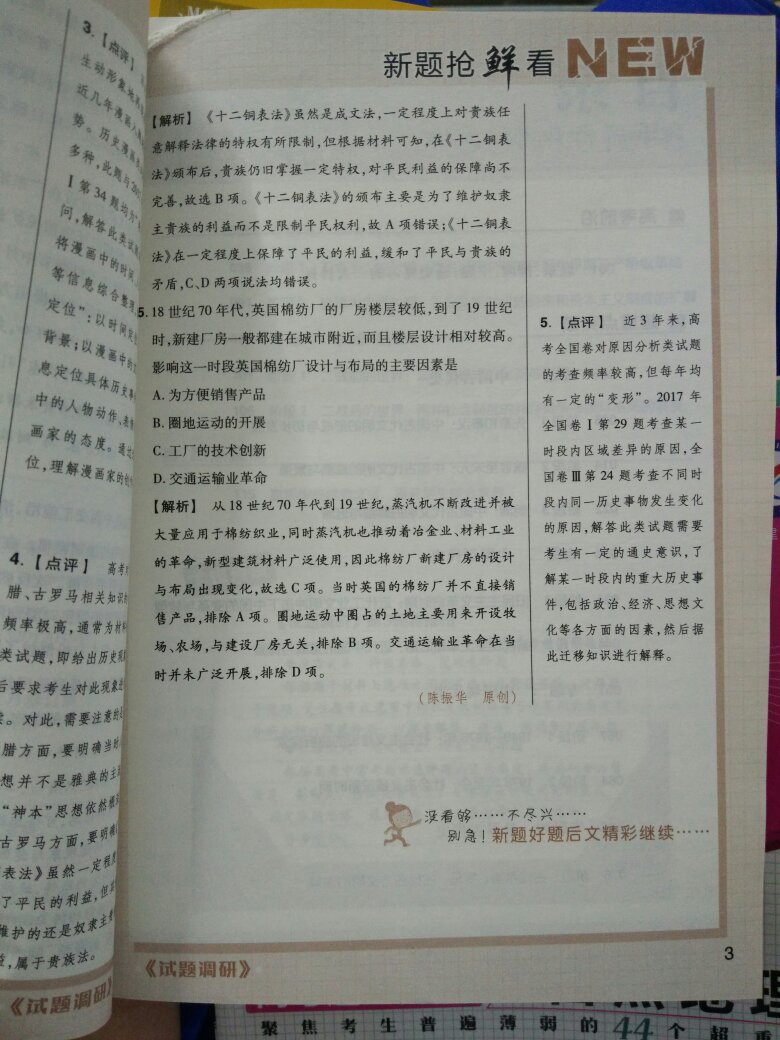 新题抢鲜看 NEW
【解析】 《十二铜表法》虽然是成文法,一定程度上对贵族任
意解释法律的特权有所限制,但根据材料可知,在《十二铜表
法》颁布后,贵族仍旧掌握一定特权,对平民利益的保障尚不
完善,故选 B 项。《十二铜表法》的颁布主要是为了维护奴隶
主贵族的利益而不是限制平民权利,故 A 项错误;《十二铜表
法》在一定程度上保障了平民的利益,缓和了平民与贵族的
矛盾,C、D 两项说法均错误。
5. 18 世纪 70 年代,英国棉纺厂的厂房楼层较低,到了 19 世纪
时,新建厂房一般都建在城市附近,而且楼层设计相对较高。
影响这一时段英国棉纺厂设计与布局的主要因素是
A. 为方便销售产品
B. 圈地运动的开展
C. 工厂的技术创新
D. 交通运输业革命
【解析】 从 18 世纪 70 年代到 19 世纪,蒸汽机不断改进并被
大量应用于棉纺织业,同时蒸汽机也推动着冶金业、材料工业
的革命,新型建筑材料广泛使用,因此棉纺厂新建厂房的设计
与布局出现变化,故选 C 项。当时英国的棉纺厂并不直接销
售产品,排除 A 项。圈地运动中圈占的土地主要用来开设牧
场、农场,与建设厂房无关,排除 B 项。交通运输业革命在当
时并未广泛开展,排除 D 项。
(陈振华 原创)
5.【点评】 近 3 年来,高
考全国卷对原因分析类试题
的考查频率较高,但每年均
有一定的“变形”。2017 年
全国卷Ⅰ第 29 题考查某一
时段内区域差异的原因,全
国卷Ⅲ第 24 题考查不同时
段内同一历史事物发生变化
的原因,解答此类试题需要
考生有一定的通史意识,了
解某一时段内的重大历史事
件,包括政治、经济、思想文
化等各方面的因素,然后据
此迁移知识进行解释。
没看够……不尽兴……
别急!新题好题后文精彩继续……
《试题调研》
3
3.【点评】
生动形象地
近几年漫画
势。历史漫画
多种,此题与
Ⅰ第 34 题均为
问,解答此类试
将漫画中的时间
等信息综合整理
定位”:以时间定
背景;以漫画中的
息定位具体历史事
中的人物动作、表
画家的态度。通过
位,理解漫画家的创
4.【点评】 高考
腊、古罗马相关知识
频率极高,通常为材
类试题,即给出历史现
后要求考生对此现象
。对此,需要注意的
腊方面,要明确当时
想并不是雅典的主
“神本”思想依然
古罗马方面,要明确
表法》虽然一定程度
了平民的利益,但
维护的还是奴隶主
益,属于贵族法。
《试题调研》
聚焦考生普遍薄弱的44个超重